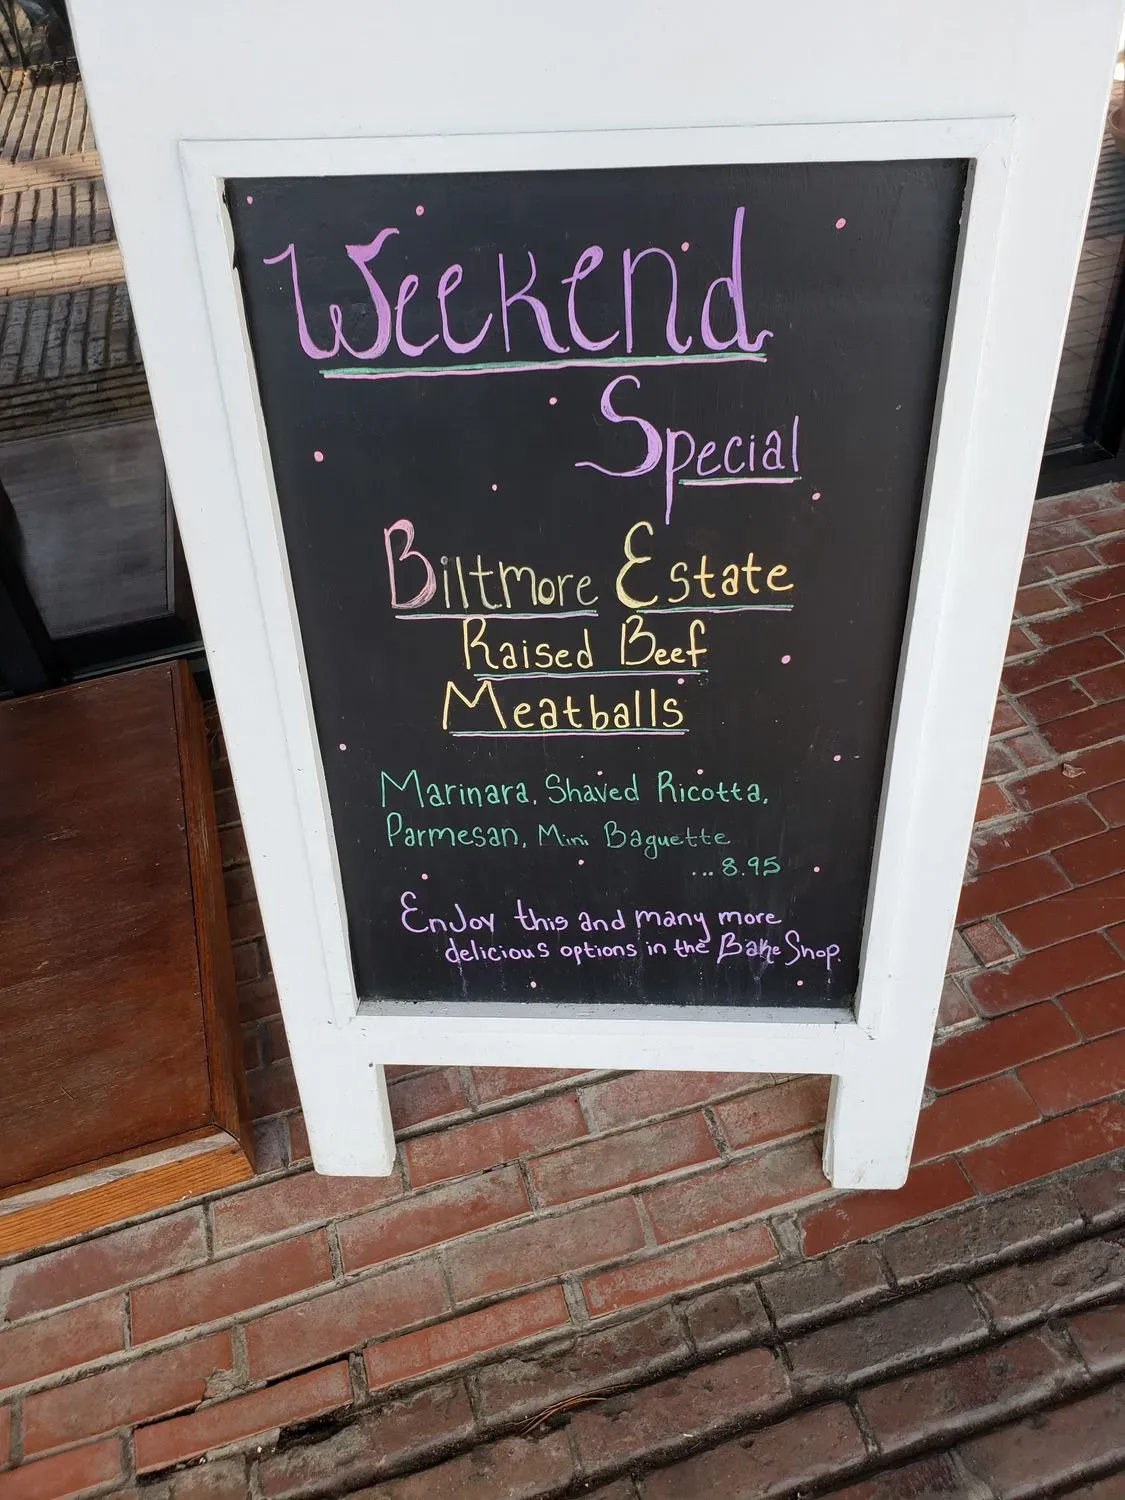 Weekend
Special
Biltmore Estate
Raised Beef
Meatballs
Marinara, Shaved Ricotta,
Parmesan, Mini Baguette
... 8.95
Enjoy this and many more
delicious options in the Bake Shop.